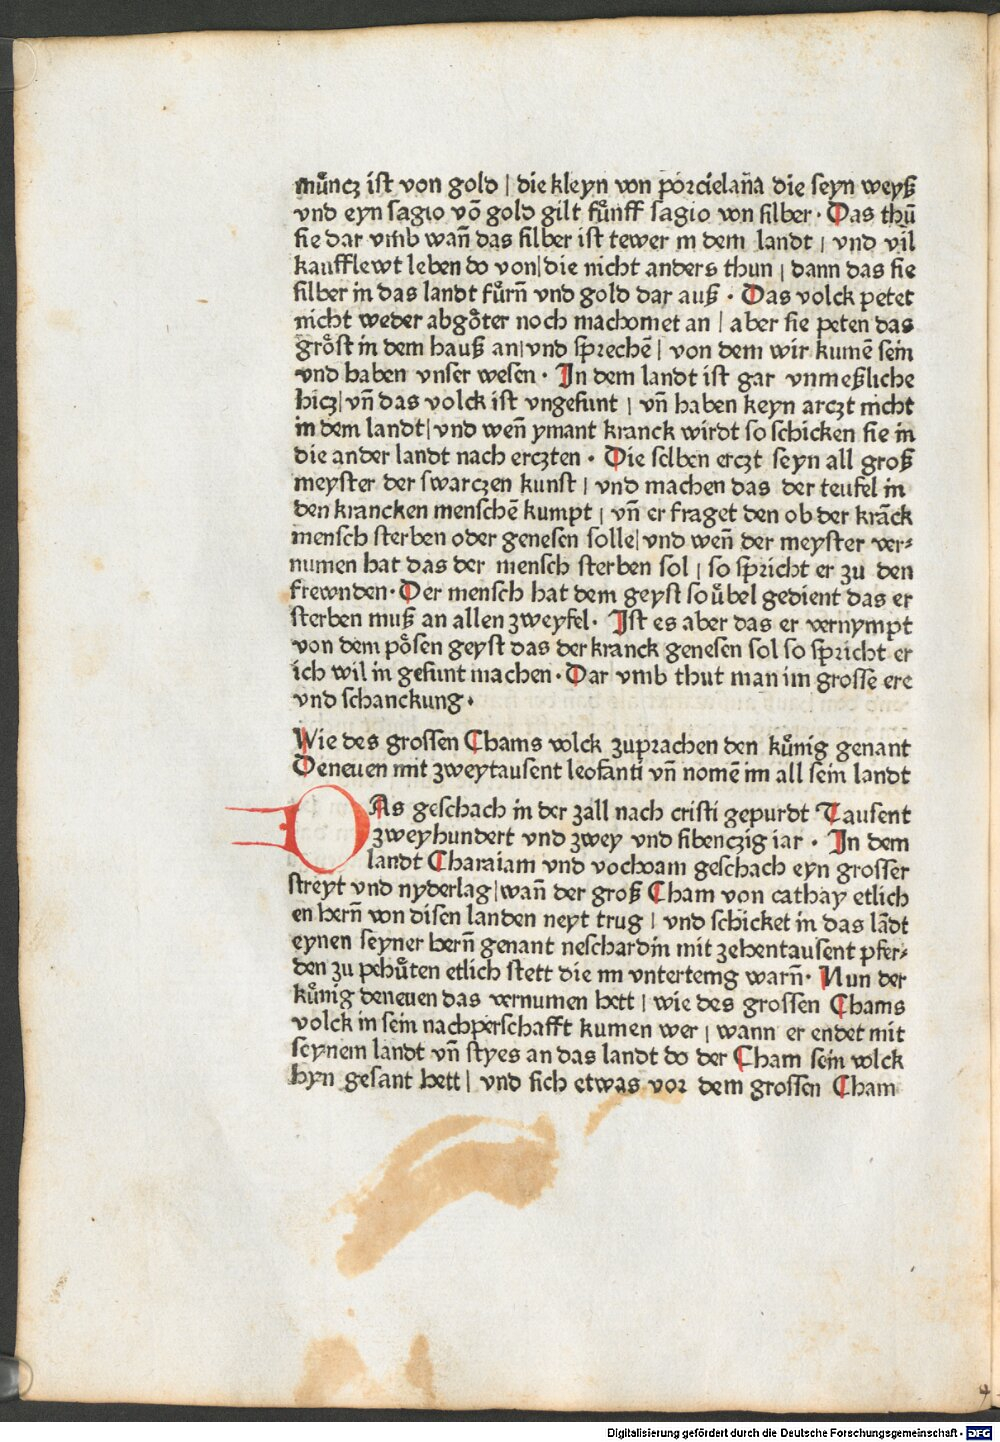 mu̇ncz ist von gold | die kleyn von porcielan̄a die seyn weyß
vnd eyn sagio vō gold gilt fu̇nff sagio von silber · Das thū
sie dar vmb wan̄ das silber ist tewer in dem landt | vnd vil
kaufflewt leben do von | die nicht anders thun | dann das sie
silber in das landt fu̇rn̄ vnd gold dar auß · Das volck petet
nicht weder abgo̊ter noch machomet an | aber sie peten das
gro̊st in dem hauß an | vnd sprechē | von dem wir kumē sein
vnd haben vnser wesen · In dem landt ist gar vnmeßliche
hicz | vn̄ das volck ist vngesunt | vn̄ haben keyn arczt nicht
in dem landt | vnd wen̄ ymant kranck wirdt so schicken sie in
die ander landt nach erczten · Die selben erczt seyn all groß
meyster der swarczen kunst | vnd machen das der teufel in
den krancken menschē kumpt | vn̄ er fraget den ob der krāck
mensch sterben oder genesen solle | vnd wen̄ der meyster ver⸗
numen hat das der mensch sterben sol | so spricht er zu den
frewnden · Der mensch hat dem geyst so u̇bel gedient das er
sterben muß an allen zweyfel · Ist es aber das er vernympt
von dem po̊sen geyst das der kranck genesen sol so spricht er
ich wil in gesunt machen · Dar vmb thut man im grosse ere
vnd schanckung ·
Wie des grossen Chams volck zuprachen den ku̇nig genant
Deneuen mit zweytausent leofanti vn̄ nomē im all sein landt
DAs geschach in der zall nach cristi gepurdt Tausent
zweyhundert vnd zwey vnd sibenczig iar · In dem
landt Charaiam vnd vocham geschach eyn grosser
streyt vnd nyderlag | wan̄ der groß Cham von cathay etlich
en hern̄ von disen landen neyt trug | vnd schicket in das lādt
eynen seyner hern̄ genant neschardin mit zehentausent pfer⸗
den zu pehu̇ten etlich stett die im vntertenig warn̄ · Nun der
ku̇nig deneuen das vernumen hett | wie des grossen Chams
volck in sein nachperschafft kumen wer | wann er endet mit
seynem landt vn̄ styes an das landt do der Cham sein volck
hyn gesant hett | vnd sich etwas vor dem grossen Cham
Digitalisierung gefördert durch die Deutsche Forschungsgemeinschaft - DFG